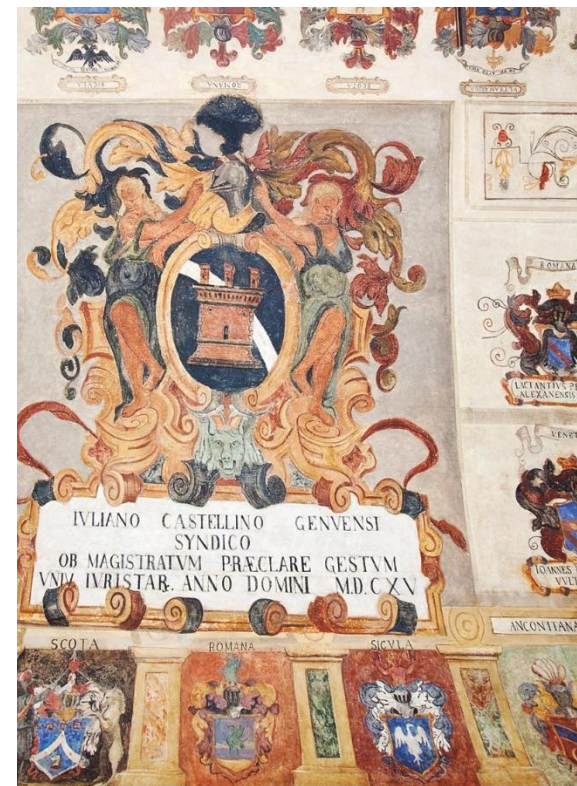 SICVLA
ROMANA
SCOTA
VLTRAMARINA
ROMANA
LACTANTIVS
ALEXANENSIS
VENET
IOANNES
VVLT
IVLIANO CASTELLINO GENVENSI
SYNDICO
OB MAGISTRATVM PRÆCLARE GESTVM
VNIV IVRISTAR. ANNO DOMINI M.D.CXV
ANCONITANA
SCOTA
ROMANA
SICVLA